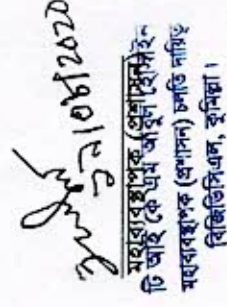 ১২/০৮/2020
মহাব্যবস্থাপক (প্রশাসন)
টি আই কে এম আবুল হোসাইন
মহাব্যবস্থাপক (প্রশাসন) চলতি দায়িত্ব
বিজিডিসিএল, কুমিল্লা।